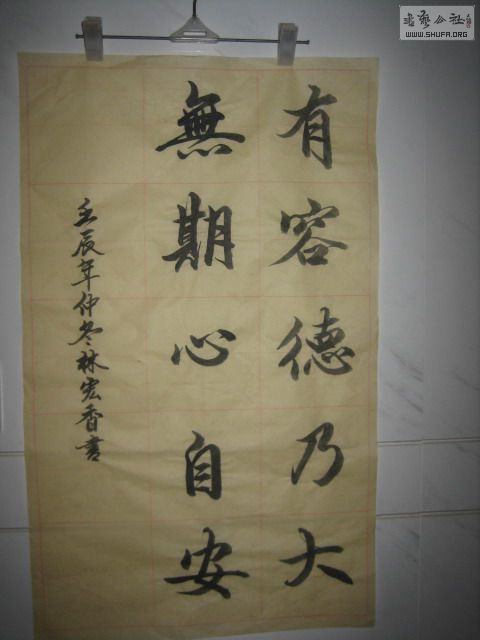 有容德乃大
無期心自安
壬辰年仲冬林宏香書
書藝公社
WWW.SHUFA.ORG